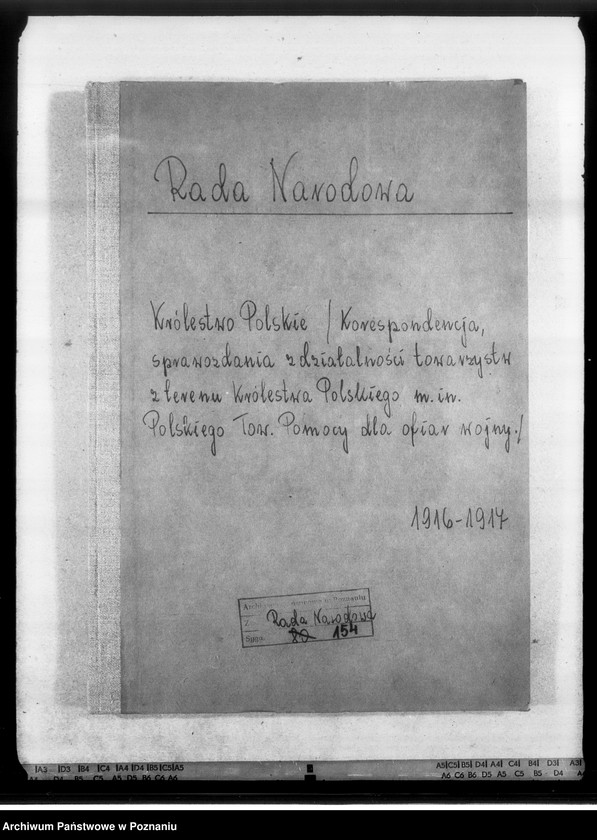 Rada Narodowa
Królestwo Polskie / Korespondencja,
sprawozdania z działalności towarzystw
z terenu Królestwa Polskiego m. in.
Polskiego Tow. Pomocy dla ofiar wojny./
1916-1917
Archiwum w Poznaniu
Z. Rada Narodowa
Sygn. 80 154
A3 D3 B4 C4 A4 D4 B5 C5 A5
A4 D4 B5 C5 A5 D5 B6 C6 A6
A5 C5 B5 D4 A4 C4 B4 D3 A3
A6 C6 B6 D5 A5 C5 B5 D4 A4
Archiwum Państwowe w Poznaniu